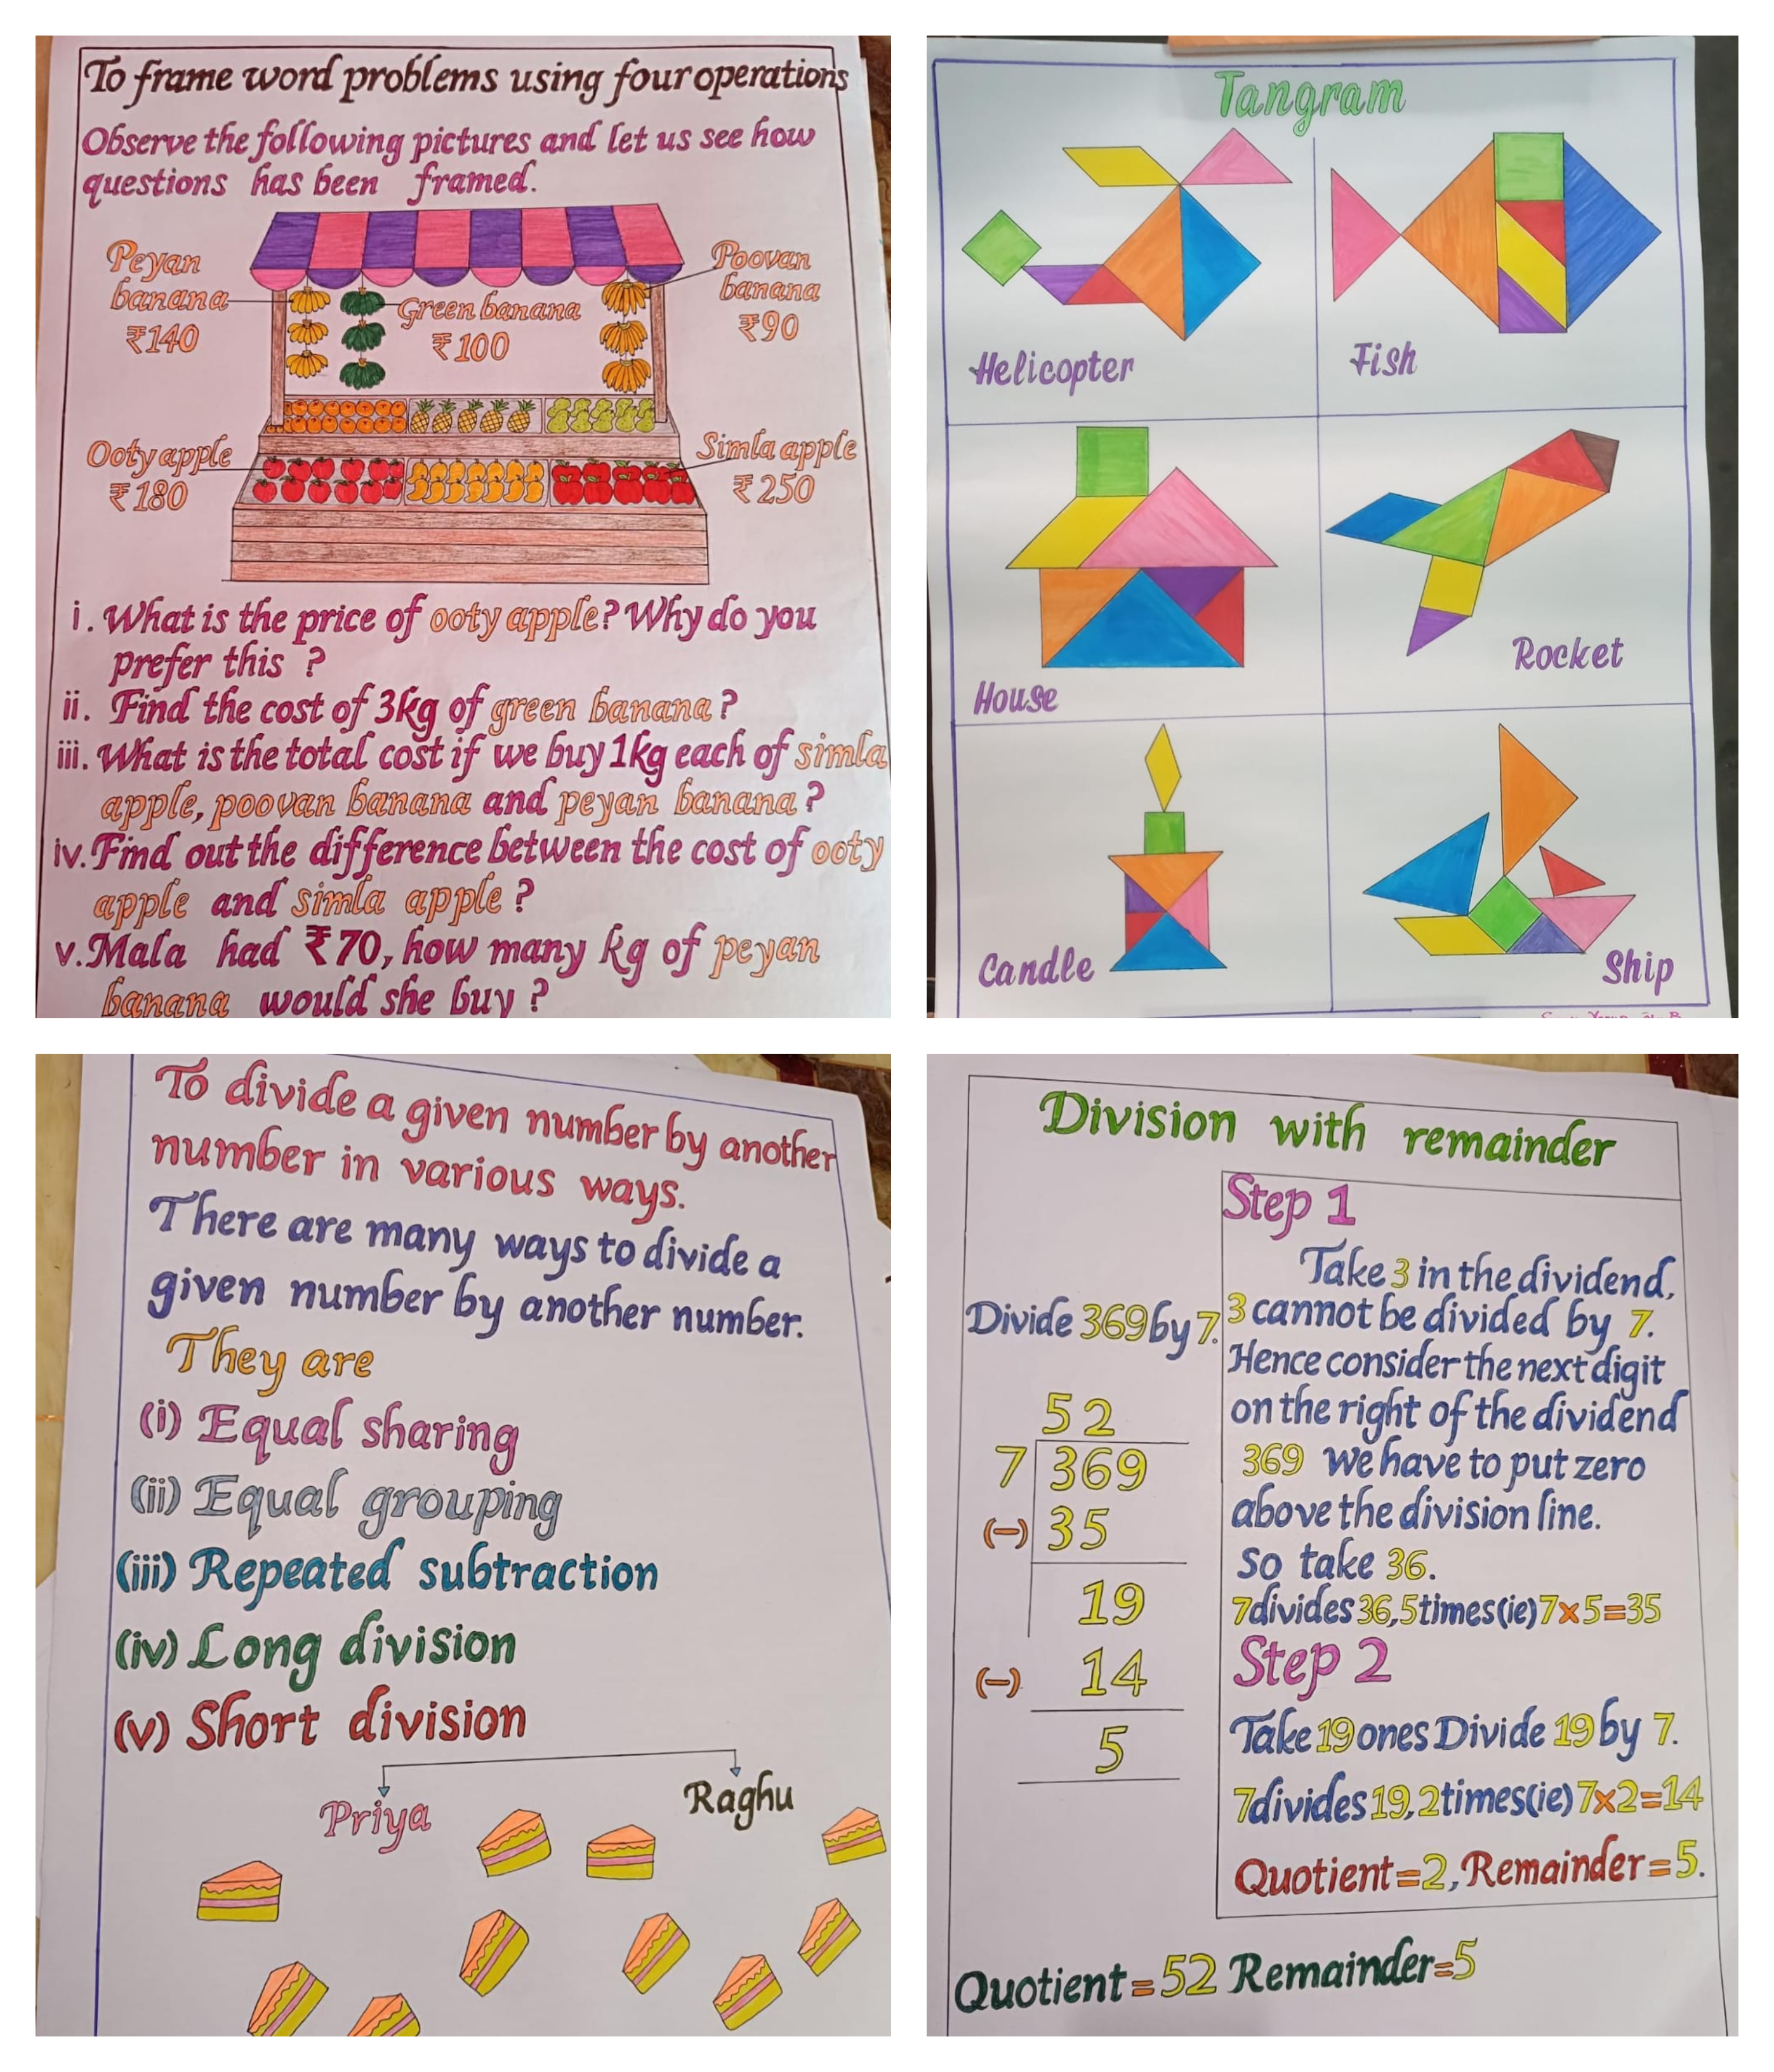 To frame word problems using four operations
Observe the following pictures and let us see how
questions has been framed.
Peyan
banana
₹140
Green banana
₹100
Poovan
banana
₹90
Ooty apple
₹180
Simla apple
₹250
i. What is the price of ooty apple? Why do you
prefer this ?
ii. Find the cost of 3kg of green banana?
iii. What is the total cost if we buy 1kg each of simla
apple, poovan banana and peyan banana?
iv. Find out the difference between the cost of ooty
apple and simla apple?
v. Mala had ₹70, how many kg of peyan
banana would she buy?
Tangram
Helicopter
Fish
House
Rocket
Candle
Ship
To divide a given number by another
number in various ways.
There are many ways to divide a
given number by another number.
They are
(i) Equal sharing
(ii) Equal grouping
(iii) Repeated subtraction
(iv) Long division
(v) Short division
Priya
Raghu
Division with remainder
Divide 369 by 7.
52
7 369
(-) 35
19
(-) 14
5
Step 1
Take 3 in the dividend,
3 cannot be divided by 7.
Hence consider the next digit
on the right of the dividend
369 we have to put zero
above the division line.
So take 36.
7 divides 36, 5 times (ie) 7x5=35
Step 2
Take 19 ones Divide 19 by 7.
7 divides 19, 2 times (ie) 7x2=14
Quotient=2, Remainder=5.
Quotient=52 Remainder=5